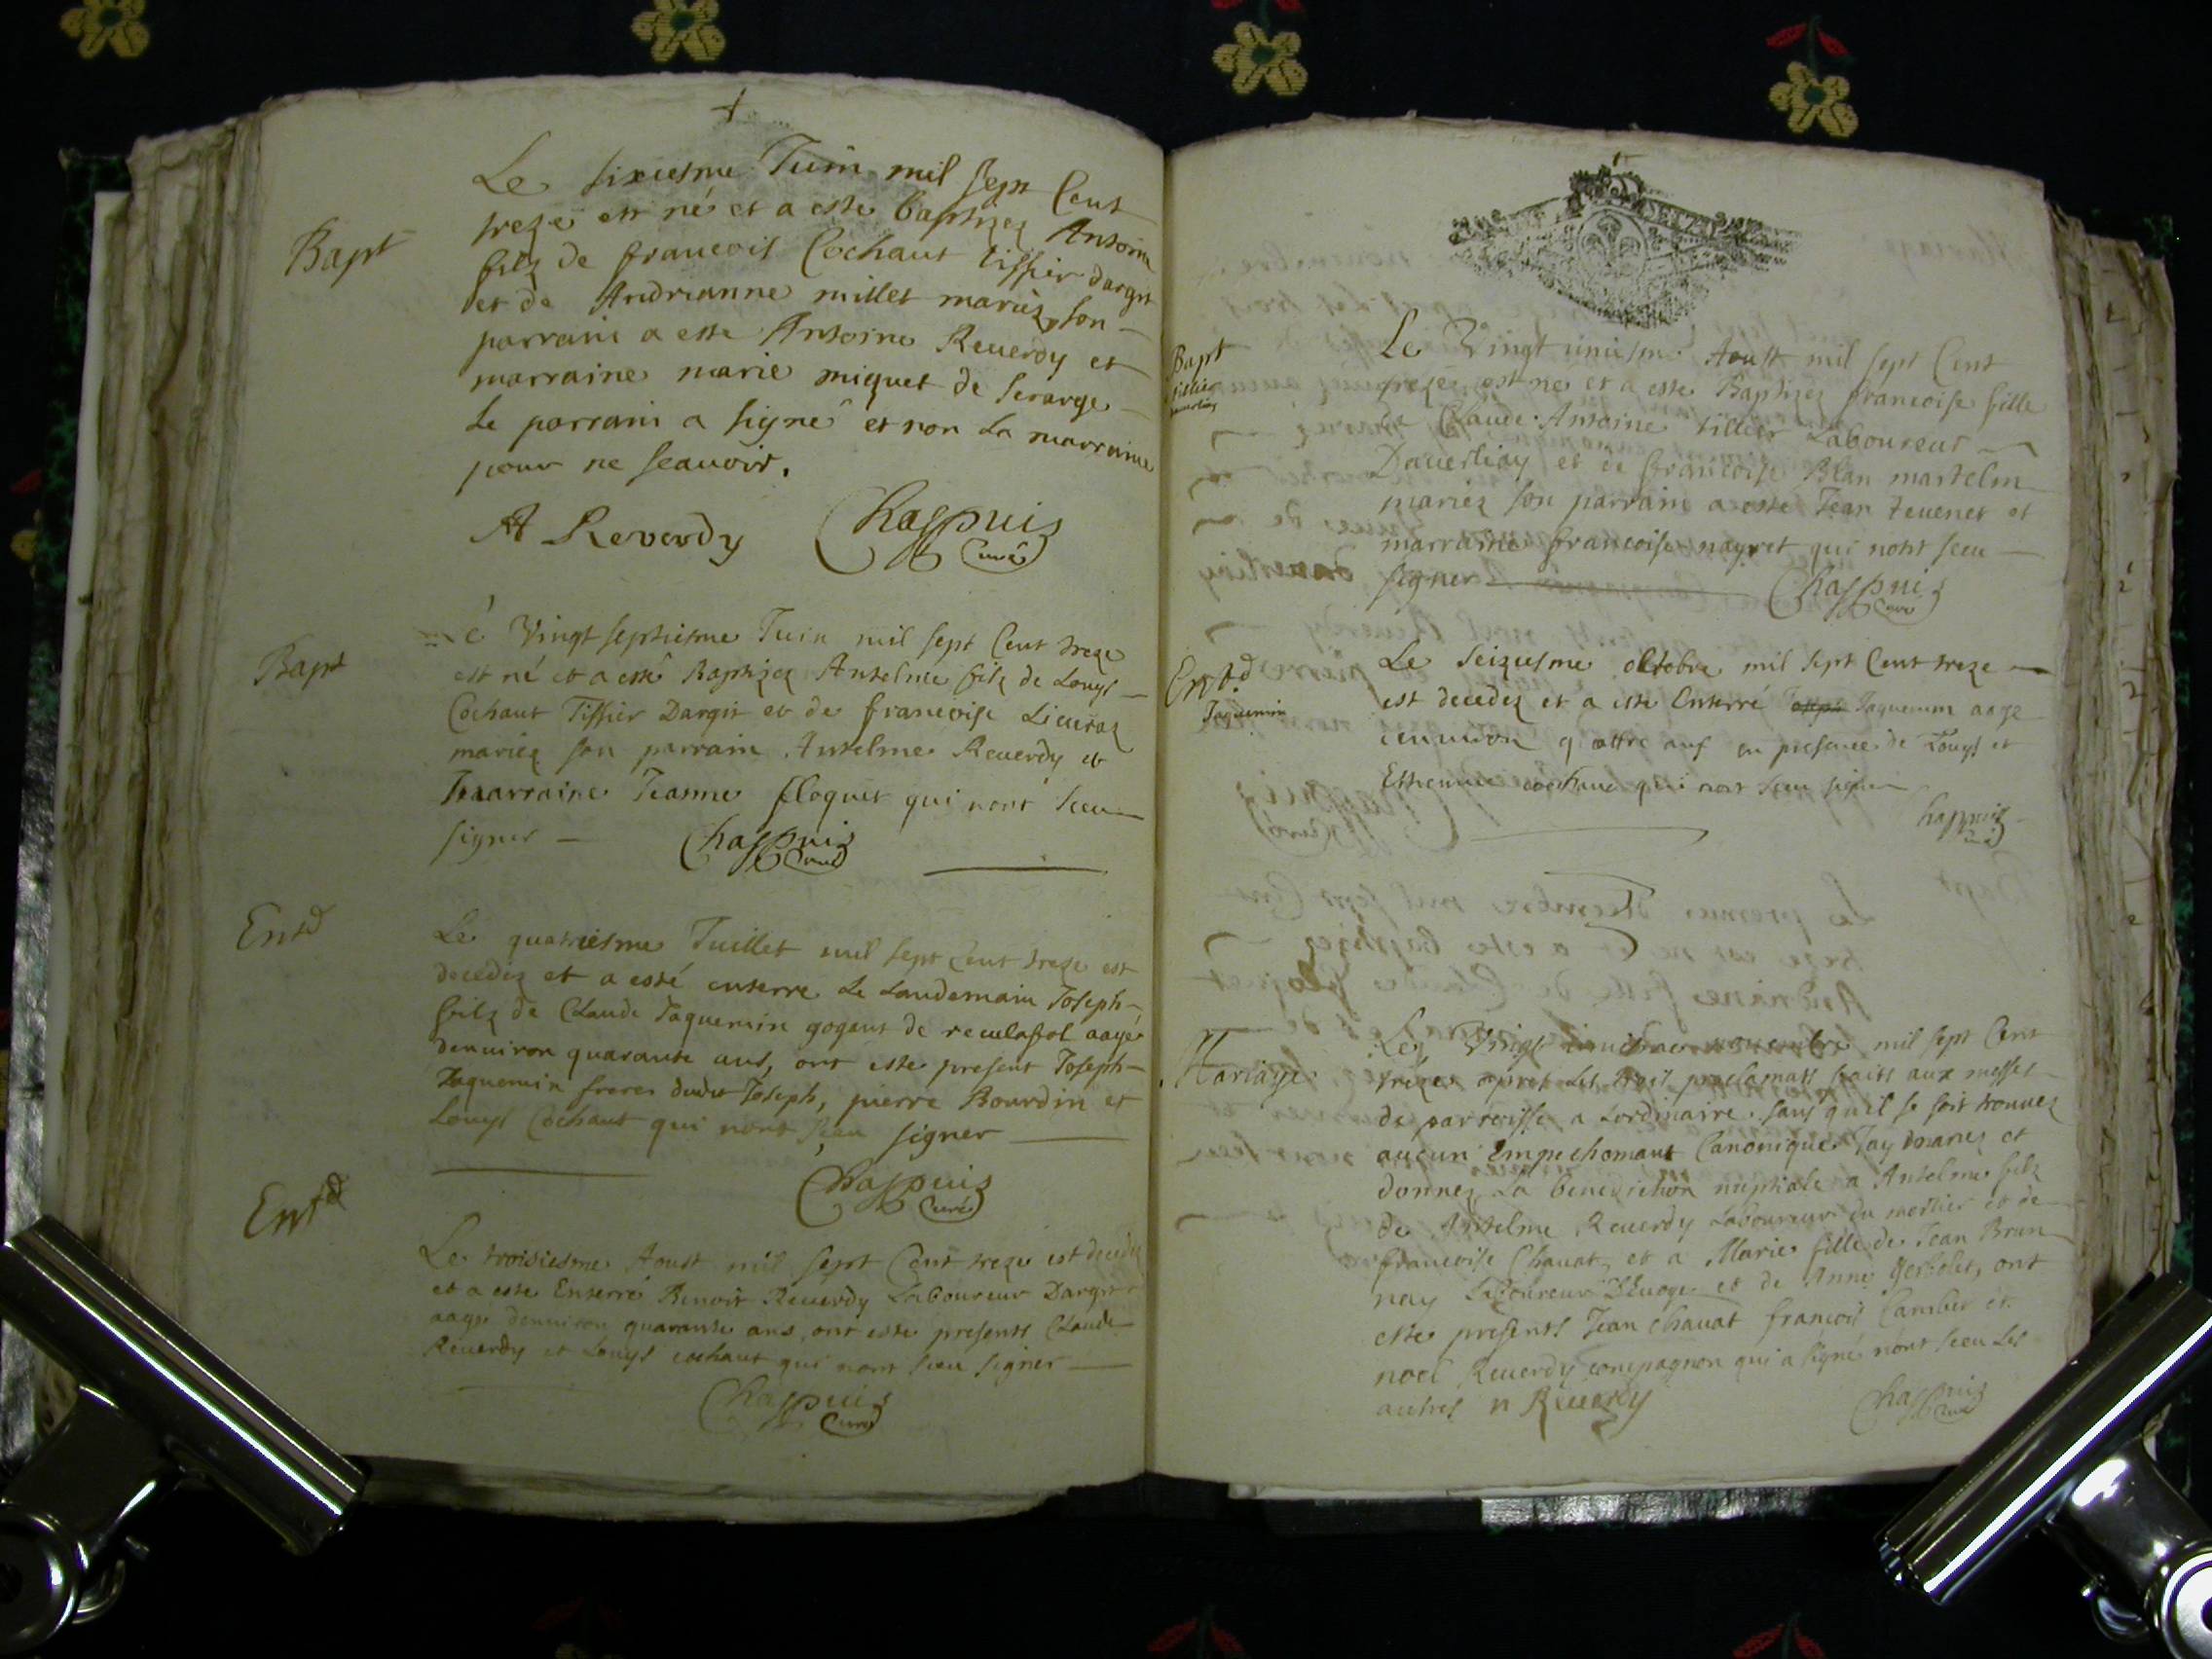 Le sixiesme Juin mil sept Cent
Bapt
treze est né et a este baptizez Antoine
filz de francois Cochaut tissier dargit
et de Andrianne millet mariéz, son
parrain a este Antoine Reuerdy et
marraine marie miquet de
Le parrain a signé et non La marraine
pour ne scauoir.
A Reverdy Chappuis
curé
Bapt
Vingt septiesme Juin mil sept Cent treze
est né et a esté Baptizez Antelme filz de Louys
Cochaut Tissier Dargit et de francoise
mariez son parrain Antelme Reuerdy et
marraine Jeanne floquet qui nont sceu
signer Chappuis
curé
Entd
Le quatriesme Juillet mil sept Cent treze est
decedez et a esté enterre Le Landemain Joseph
filz de Claude Jaquemin gogant de reculafol aagé
denuiron quarante ans, ont este present Joseph
Jaquemin freres dudit Joseph, pierre Bourdin et
Louys Cochaut qui nont sceu signer
Chappuis
curé
Entd
Le troisiesme Aoust mil sept Cent treze est decedez
et a este Enterré Benoit Reuerdy Laboureur Dargit
aagé denuiron quarante ans, ont este presents Claude
Reuerdy et Louys cochaut qui nont sceu signer
Chappuis
curé
Bapt
tillier
Le Vingt uniesme Aoust mil sept Cent
treze est ne et a este Baptizez francoise fille
de Claude Antoine tillier Laboureur
et de francoise Blan martelin
mariez son parrain a este Jean teuenet et
marraine francoise nayret qui nont sceu
signer Chappuis
curé
Entd
Jaquemin
Le seiziesme octobre mil sept Cent treze
est decedez et a este Enterré Joseph Jaquemin aage
denuiron quattre ans en presence de Louys et
Estienne cochaut qui nont sceu signer
Chappuis
curé
Mariage
Le Vingt nouembre mil sept Cent
treze apres Les trois proclamats faits aux messes
de parroisse a Lordinaire sans quil se soit trouuez
aucun Empechemant Canonique Jay mariez et
donnez La benediction nuptiale a Antelme filz
de Antelme Reuerdy Laboureur du mortier et de
francoise Chauat, et a Marie fille de Jean Brun
nay Laboureur et de Anne ont
este presents Jean chauat francois Camber et
noel Reuerdy compagnon qui a signé nont sceu Les
autres n Reuerdy Chappuis
curé